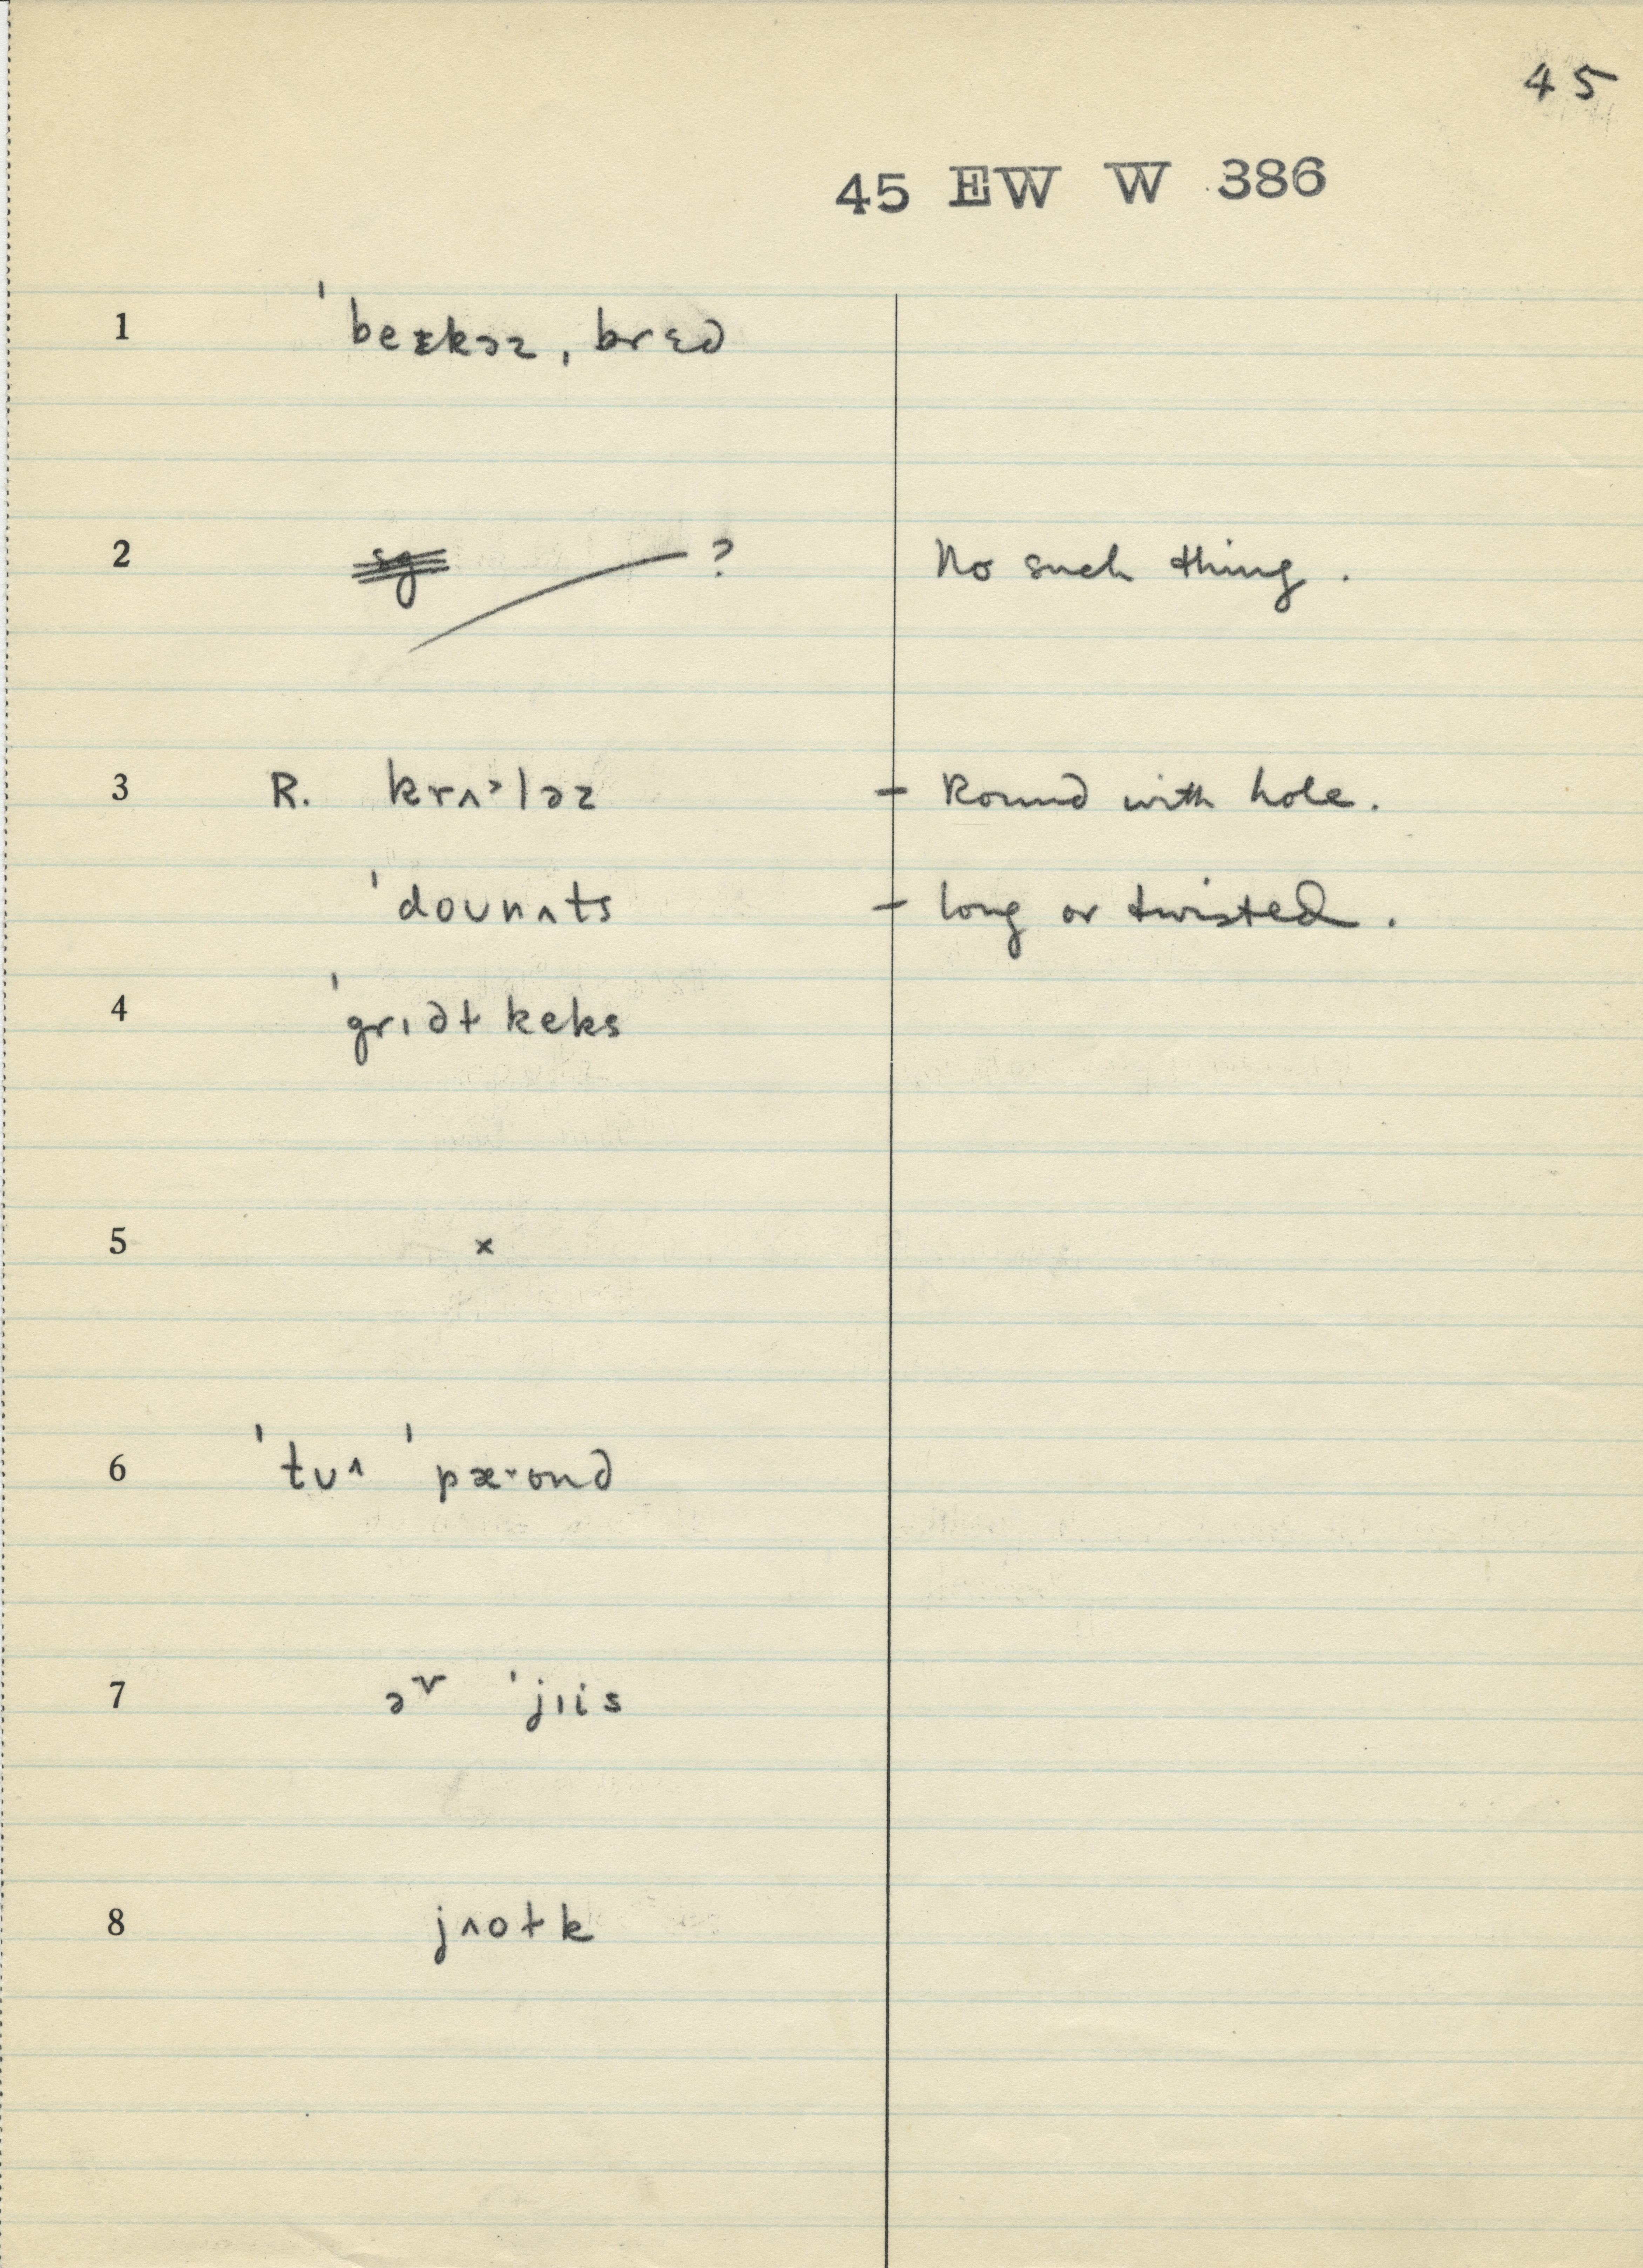 45
45 EW W 386
1 ˈbeɪkəz, brɛd
2 ? No such thing.
3 R. krʌˈləz – Round with hole.
ˈdoʊnʌts – long or twisted.
4 ˈgrɪdɫ keks
5 ×
6 ˈtuʌ ˈpæ·ʊnd
7 ər ˈjɪis
8 jʌoɫk